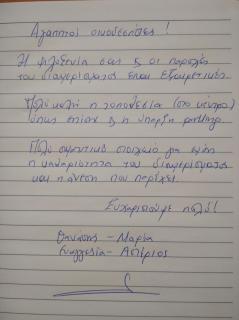 Αγαπητοί οικοδεσπότες!
Η φιλοξενία σας & οι παροχές
του διαμερίσματος είναι εξαιρετικές.
Πολύ καλή η τοποθεσία (στο κέντρο)
όπως επίσης & η ύπαρξη parking.
Πολύ σημαντικό στοιχείο για εμάς
η καθαριότητα του διαμερίσματος
και η άνεση που παρέχει.
Ευχαριστούμε πολύ!
Θανάσης - Μαρία
Ευαγγελία - Αστέριος